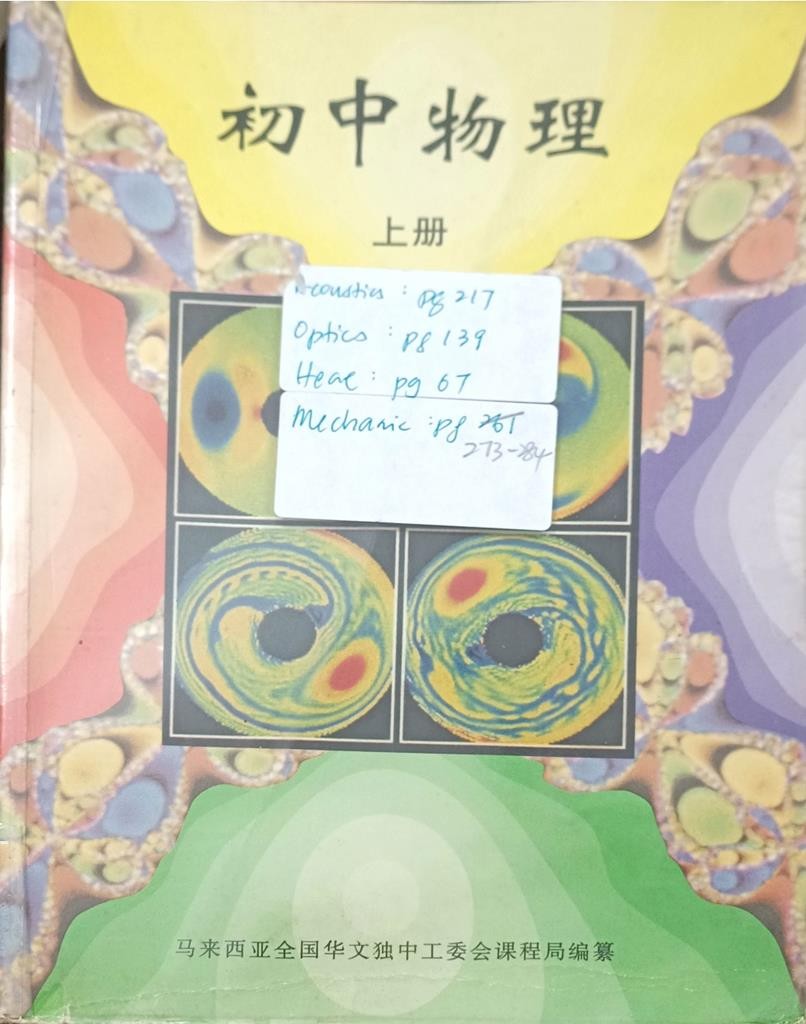 初中物理
上册
Acoustics : pg 217
Optics : pg 139
Heat : pg 67
Mechanic : pg 261
273-284
马来西亚全国华文独中工委会课程局编纂